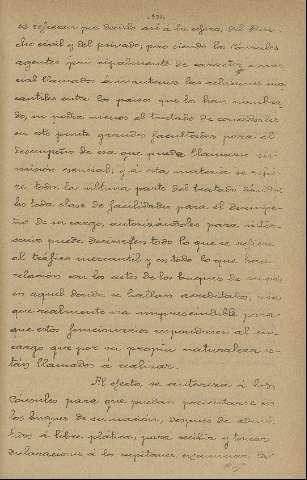 se refieren por decirlo así á la esfera del Dere-
cho civil y del privado; pero siendo los Cónsules
agentes principalmente de carácter comer-
cial llamados á mantener las relaciones mer-
cantiles entre los paises que los han nombra-
do, no podía menos el tratado de concederles
en este punto grandes facultades para el
desempeño de esa que puede llamarse su
misión esencial; y á esta materia se refie-
re toda la última parte del tratado dándo-
les toda clase de facilidades para el desempe-
ño de su cargo, autorizándoles para inter-
venir puede decirse en todo lo que se refiere
al tráfico mercantil y en todo lo que hace
relación con los actos de los buques de su pais
en aquel donde se hallan acreditados, cosa
que realmente era imprescindible para
que estos funcionarios respondiesen al en-
cargo que por su propia naturaleza es-
tán llamados á realizar.
Al efecto, se autoriza á los
Cónsules para que puedan presentarse en
los buques de su nación, después de admi-
tidos á libre plática, para recibir y tomar
declaraciones á los capitanes, examinar